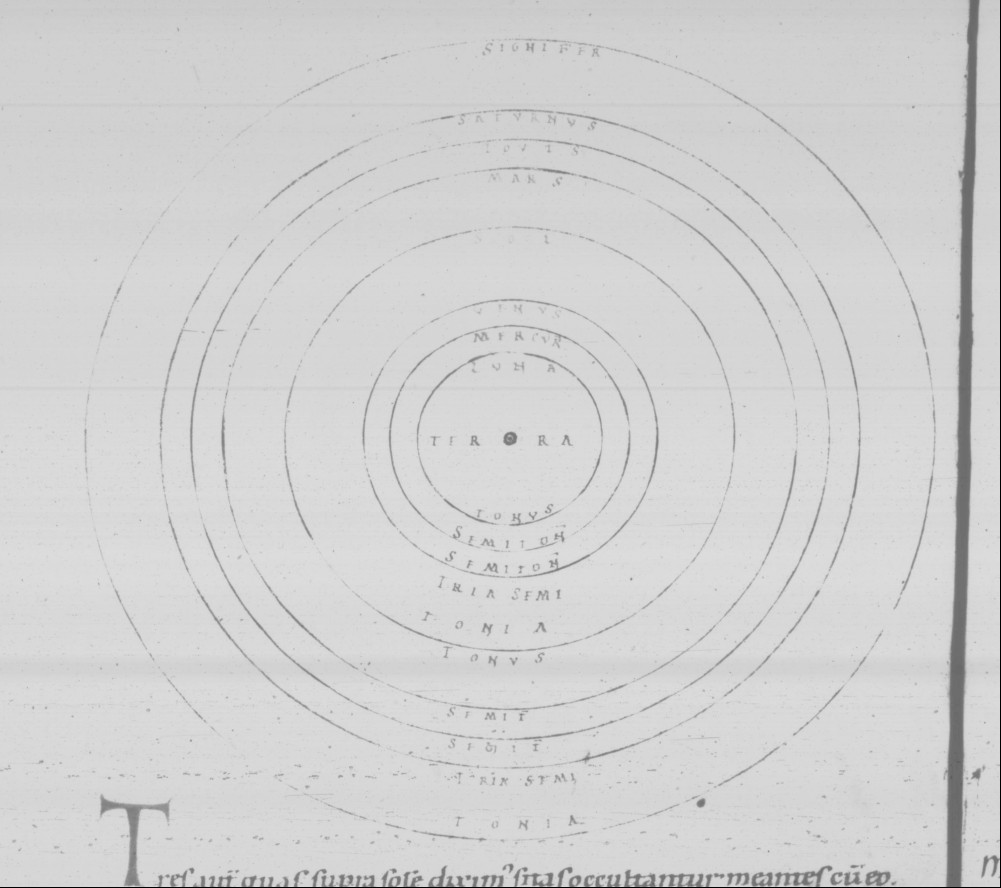 SIGNIFER
SATVRNVS
IOVIS
MARS
SOL
VENVS
MERCVR
LVNA
TERRA
TONVS
SEMITOÑ
SEMITOÑ
TRIA SEMI
TONIA
TONVS
SEMIT̄
SEMIT̄
TRIA SEMI
TONIA
Tres aut quas supra sole dixim' sitas occultantur meantes cū eo.